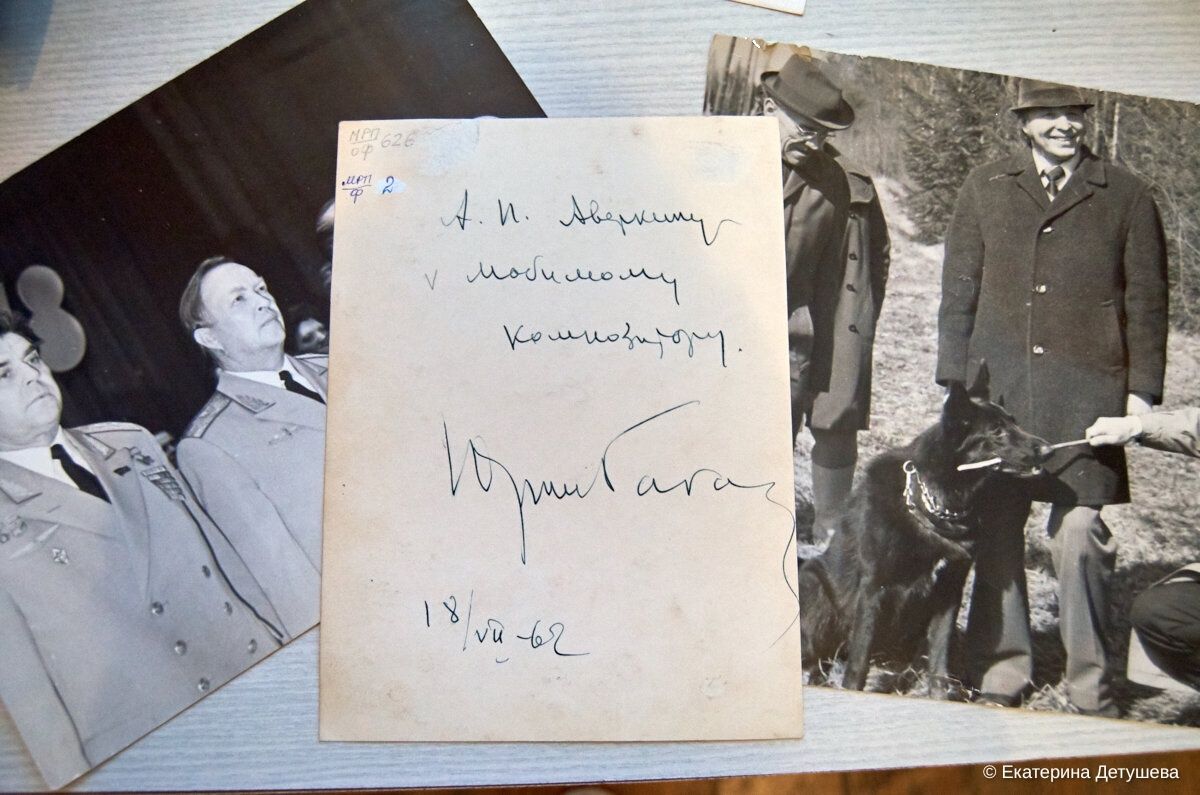 МРП
ОФ 626
МРП
Ф 2
А. П. Аверкину
любимому
композитору.
Юрий Гага
18/VII-62
© Екатерина Детушева